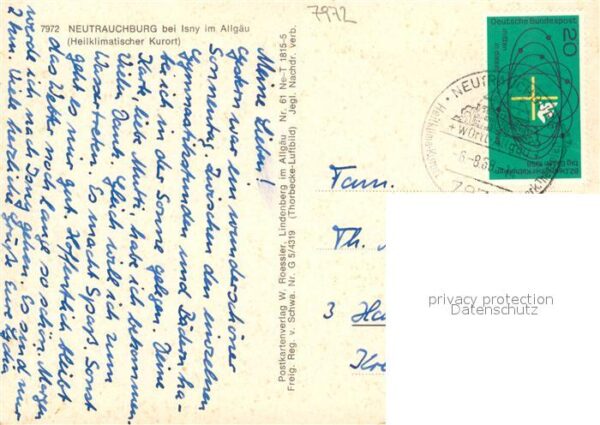 7972
7972 NEUTRAUCHBURG bei Isny im Allgäu
(Heilklimatischer Kurort)
Meine Lieben!
Gestern war ein wunderschöner
Sonnentag. Zwischen den einzelnen
Gymnastikstunden und Bädern ha-
be ich in der Sonne gelegen. Deine
Karte, lieb. Mutti, habe ich bekommen.
Vielen Dank. Gleich will ich zum
Wassertreten. Es macht Spaß. Sonst
geht es mir gut. Hoffentlich bleibt
das Wetter noch lange so schön. Morgen
werde ich nach Isny gehen. Es sind nur
2 km. Viele herzliche Grüße Eure Lydia
Postkartenverlag W. Roessler, Lindenberg im Allgäu Nr. 61 Ne-T 1815-5
Freig. Reg. v. Schwa. Nr. G 5/4319 (Thorbecke-Luftbild) Jegl. Nachdr. verb.
Deutsche Bundespost
20
mitten in dieser Welt
82. Deutscher Katholikentag
Essen 1968
NEUT
-6.-8.68
797
Fam.
Th.
3 Ha
Kr
privacy protection
Datenschutz